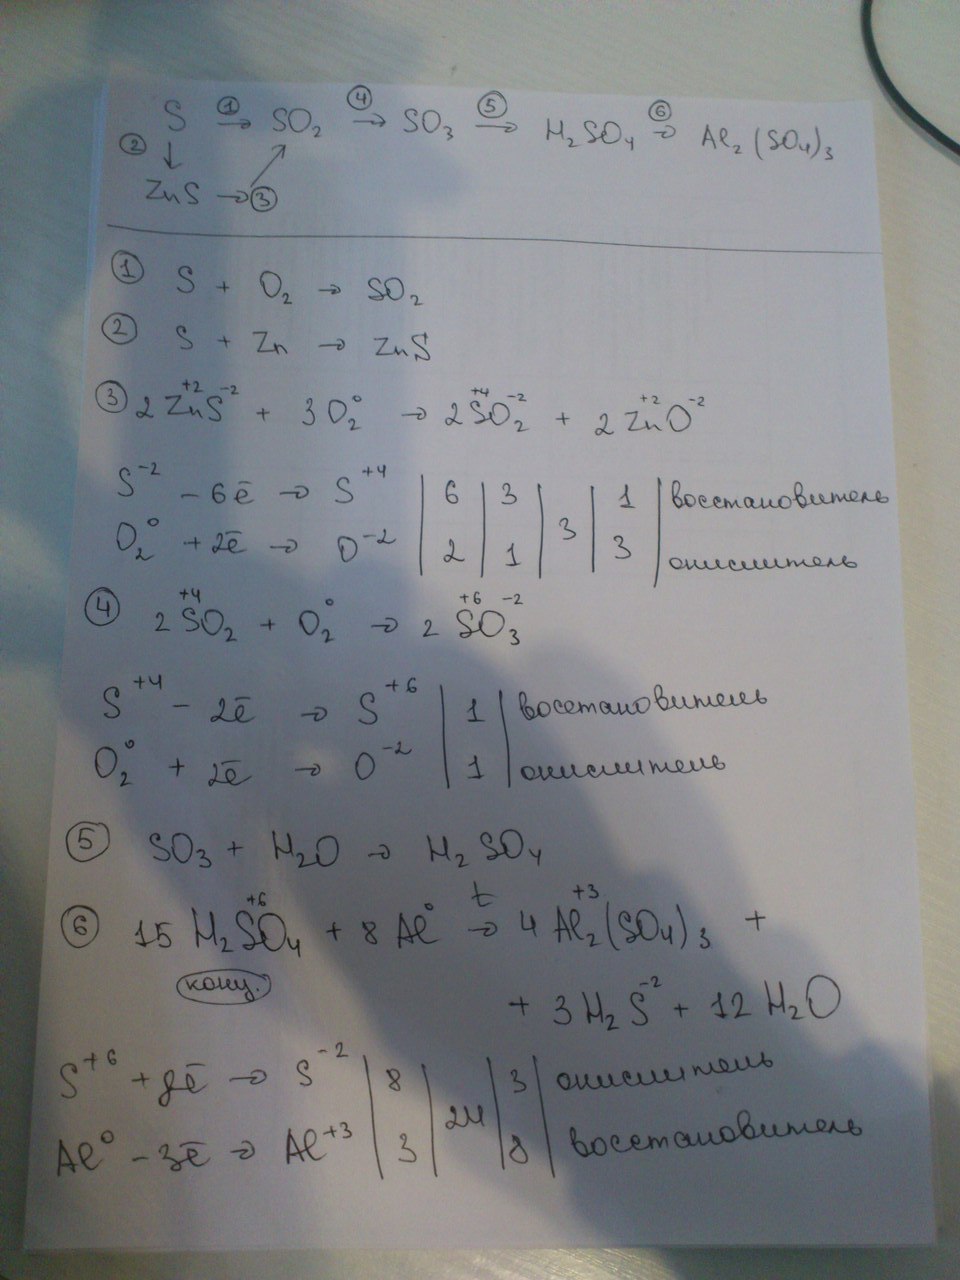 S ① → SO₂ ④ → SO₃ ⑤ → H₂SO₄ ⑥ → Al₂(SO₄)₃
② ↓ ↗
ZnS → ③
① S + O₂ → SO₂
② S + Zn → ZnS
③ 2 Zn⁺²S⁻² + 3 O₂⁰ → 2 S⁺⁴O₂⁻² + 2 Zn⁺²O⁻²
S⁻² - 6ē → S⁺⁴ | 6 | 3 | 3 | 1 | восстановитель
O₂⁰ + 2ē → O⁻² | 2 | 1 | | 3 | окислитель
④ 2 S⁺⁴O₂ + O₂⁰ → 2 S⁺⁶O₃⁻²
S⁺⁴ - 2ē → S⁺⁶ | 1 | восстановитель
O₂⁰ + 2ē → O⁻² | 1 | окислитель
⑤ SO₃ + H₂O → H₂SO₄
⑥ 15 H₂S⁺⁶O₄ + 8 Al⁰ t→ 4 Al₂⁺³(SO₄)₃ +
конц.
+ 3 H₂S⁻² + 12 H₂O
S⁺⁶ + 8ē → S⁻² | 8 | 24 | 3 | окислитель
Al⁰ - 3ē → Al⁺³ | 3 | | 8 | восстановитель